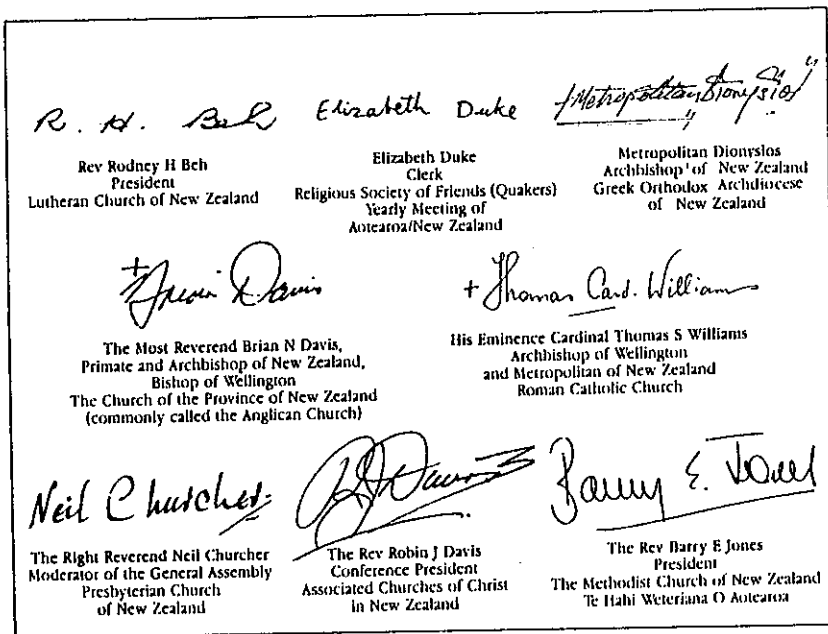 R. H. Beh
Rev Rodney H Beh
President
Lutheran Church of New Zealand
Elizabeth Duke
Elizabeth Duke
Clerk
Religious Society of Friends (Quakers)
Yearly Meeting of
Aotearoa/New Zealand
+Metropolitan Dionysios
Metropolitan Dionysios
Archbishop of New Zealand
Greek Orthodox Archdiocese
of New Zealand
+ Brian Davis
The Most Reverend Brian N Davis,
Primate and Archbishop of New Zealand,
Bishop of Wellington
The Church of the Province of New Zealand
(commonly called the Anglican Church)
+ Thomas Card. Williams
His Eminence Cardinal Thomas S Williams
Archbishop of Wellington
and Metropolitan of New Zealand
Roman Catholic Church
Neil Churcher
The Right Reverend Neil Churcher
Moderator of the General Assembly
Presbyterian Church
of New Zealand
RJDavis
The Rev Robin J Davis
Conference President
Associated Churches of Christ
in New Zealand
Barry E. Jones
The Rev Barry E Jones
President
The Methodist Church of New Zealand
Te Hahi Weteriana O Aotearoa